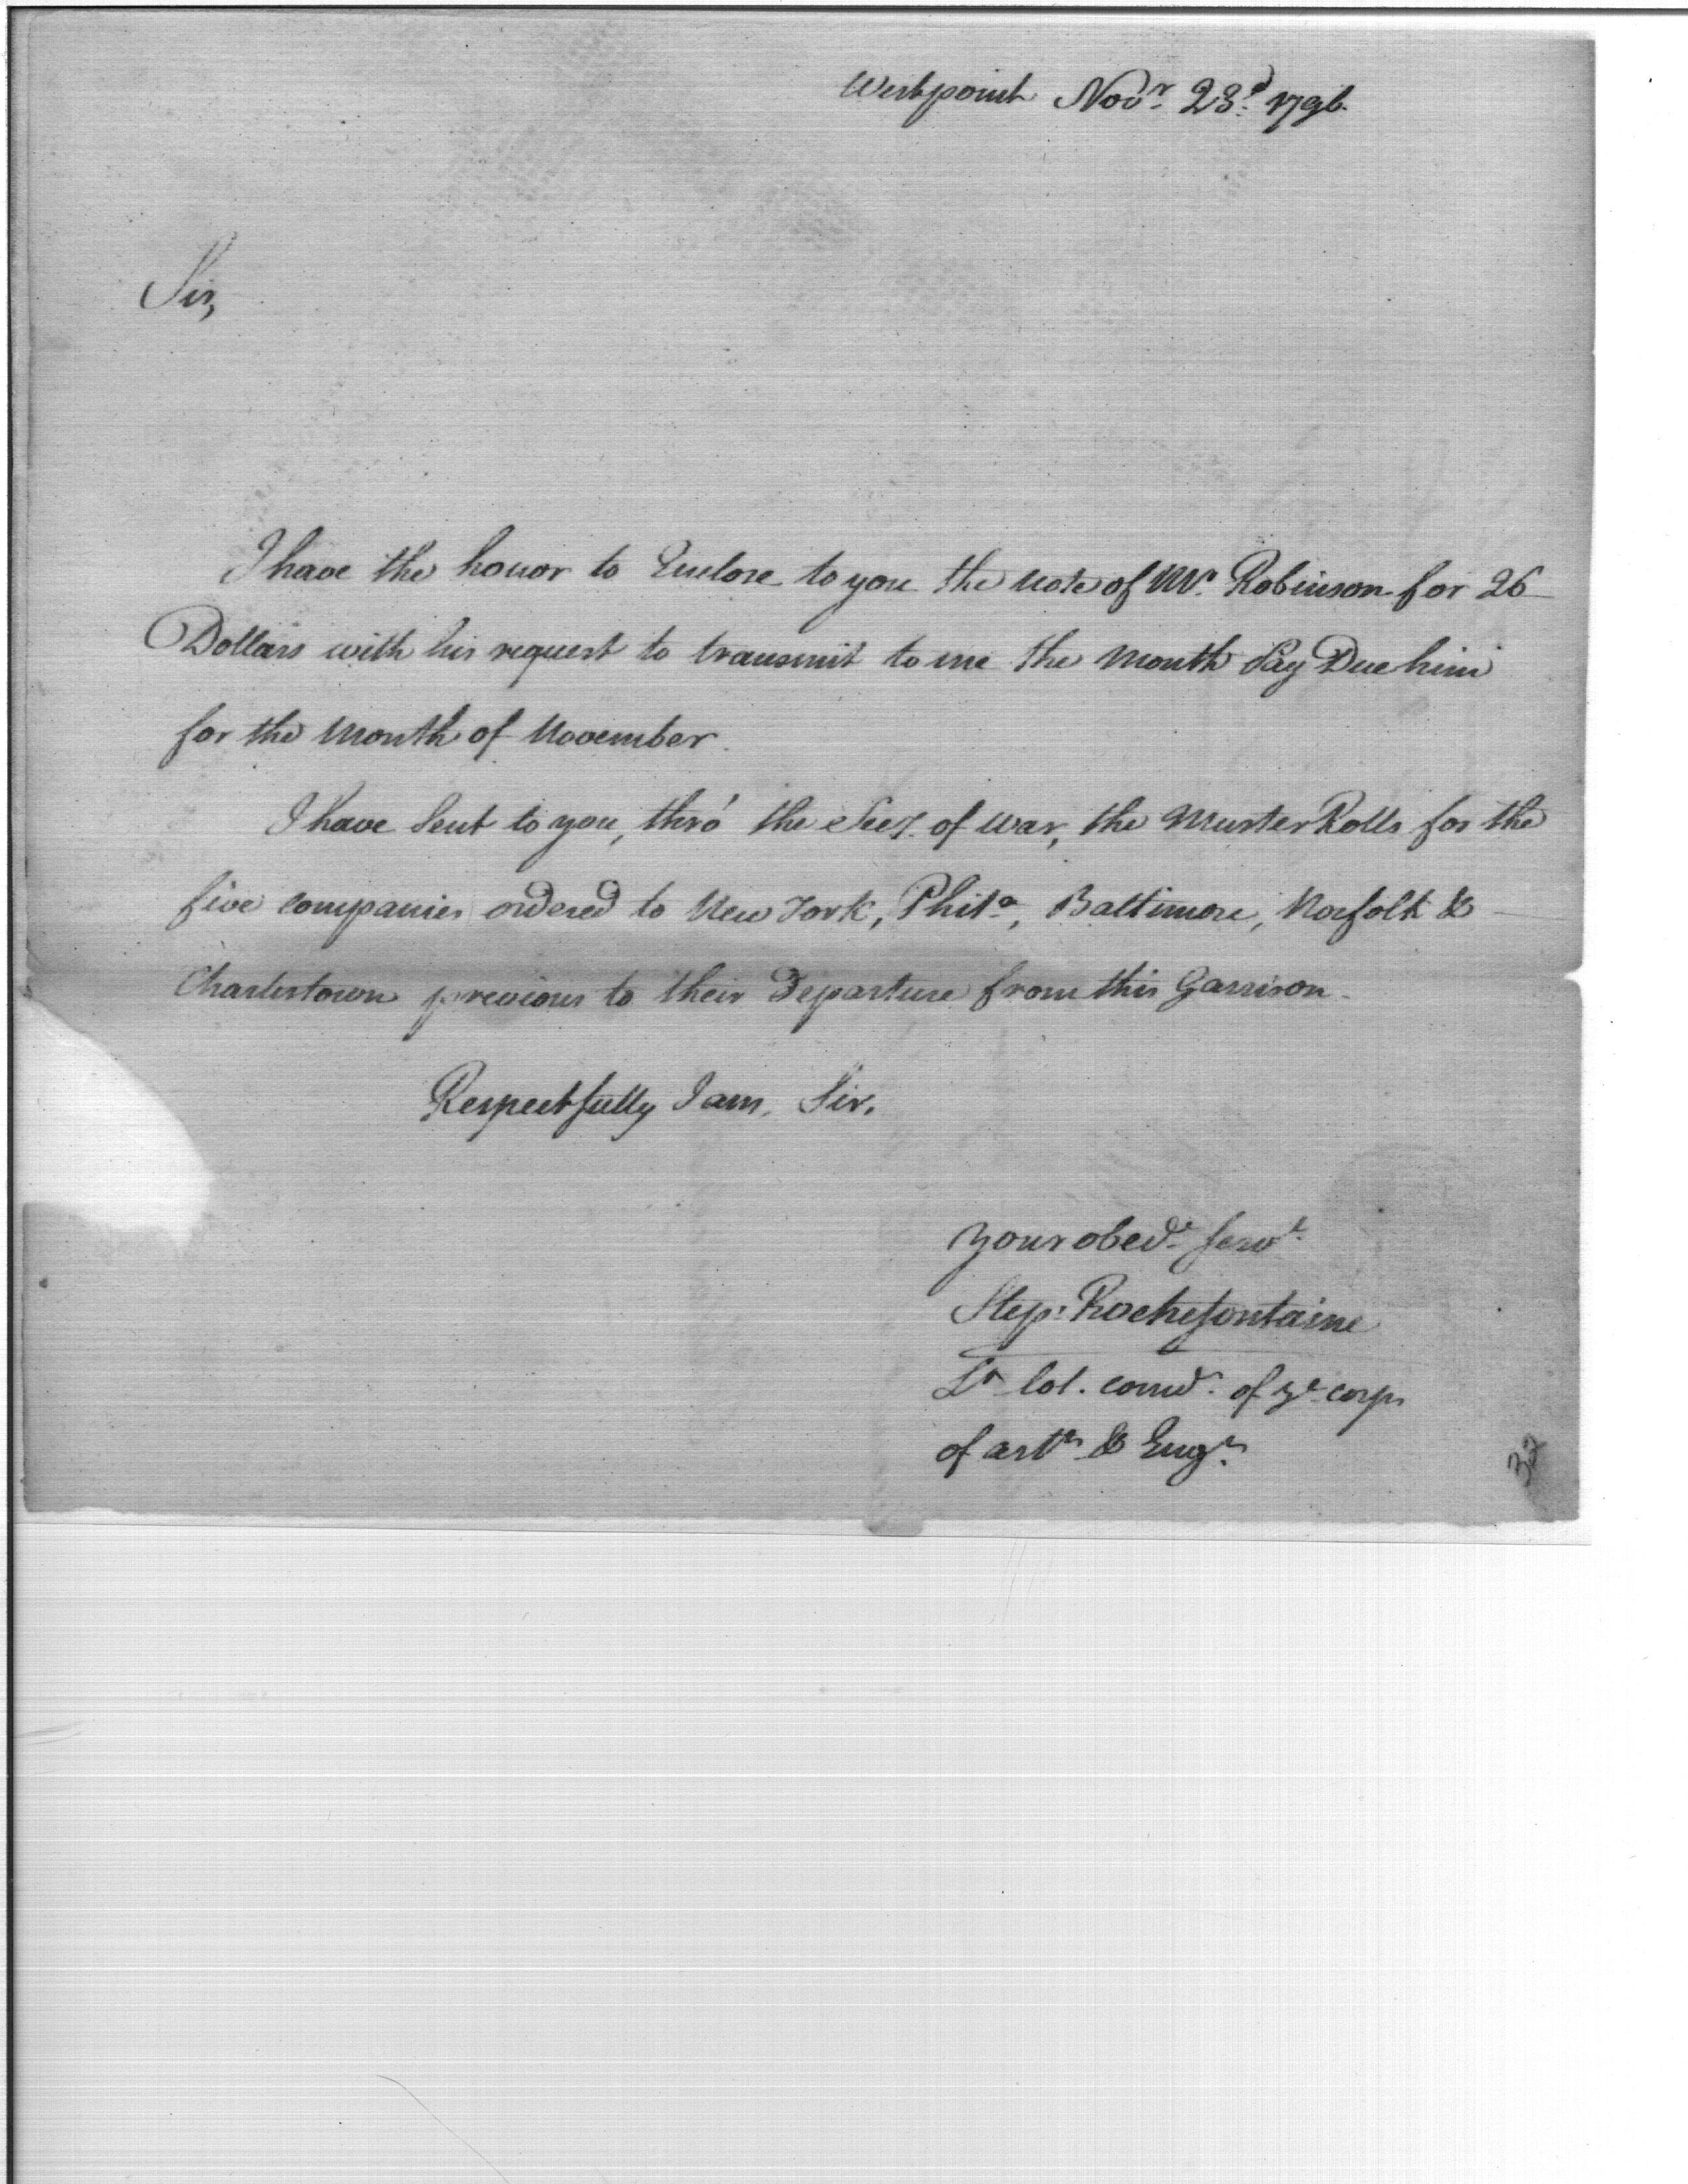 Westpoint Novr. 23d. 1796.
Sir,
I have the honor to Enclose to you the note of Mr. Robinson for 26
Dollars with his request to transmit to me the Month Pay Due him
for the Month of November.
I have sent to you, thro' the Secy. of war, the Muster Rolls for the
five companies ordered to New York, Phila, Baltimore, Norfolk &
Charlestown previous to their Departure from this Garrison.
Respectfully I am, Sir,
your obedt. servt.
Step: Rochefontaine
Lt Col. comdt. of ye corps
of artrs & Engrs.
32